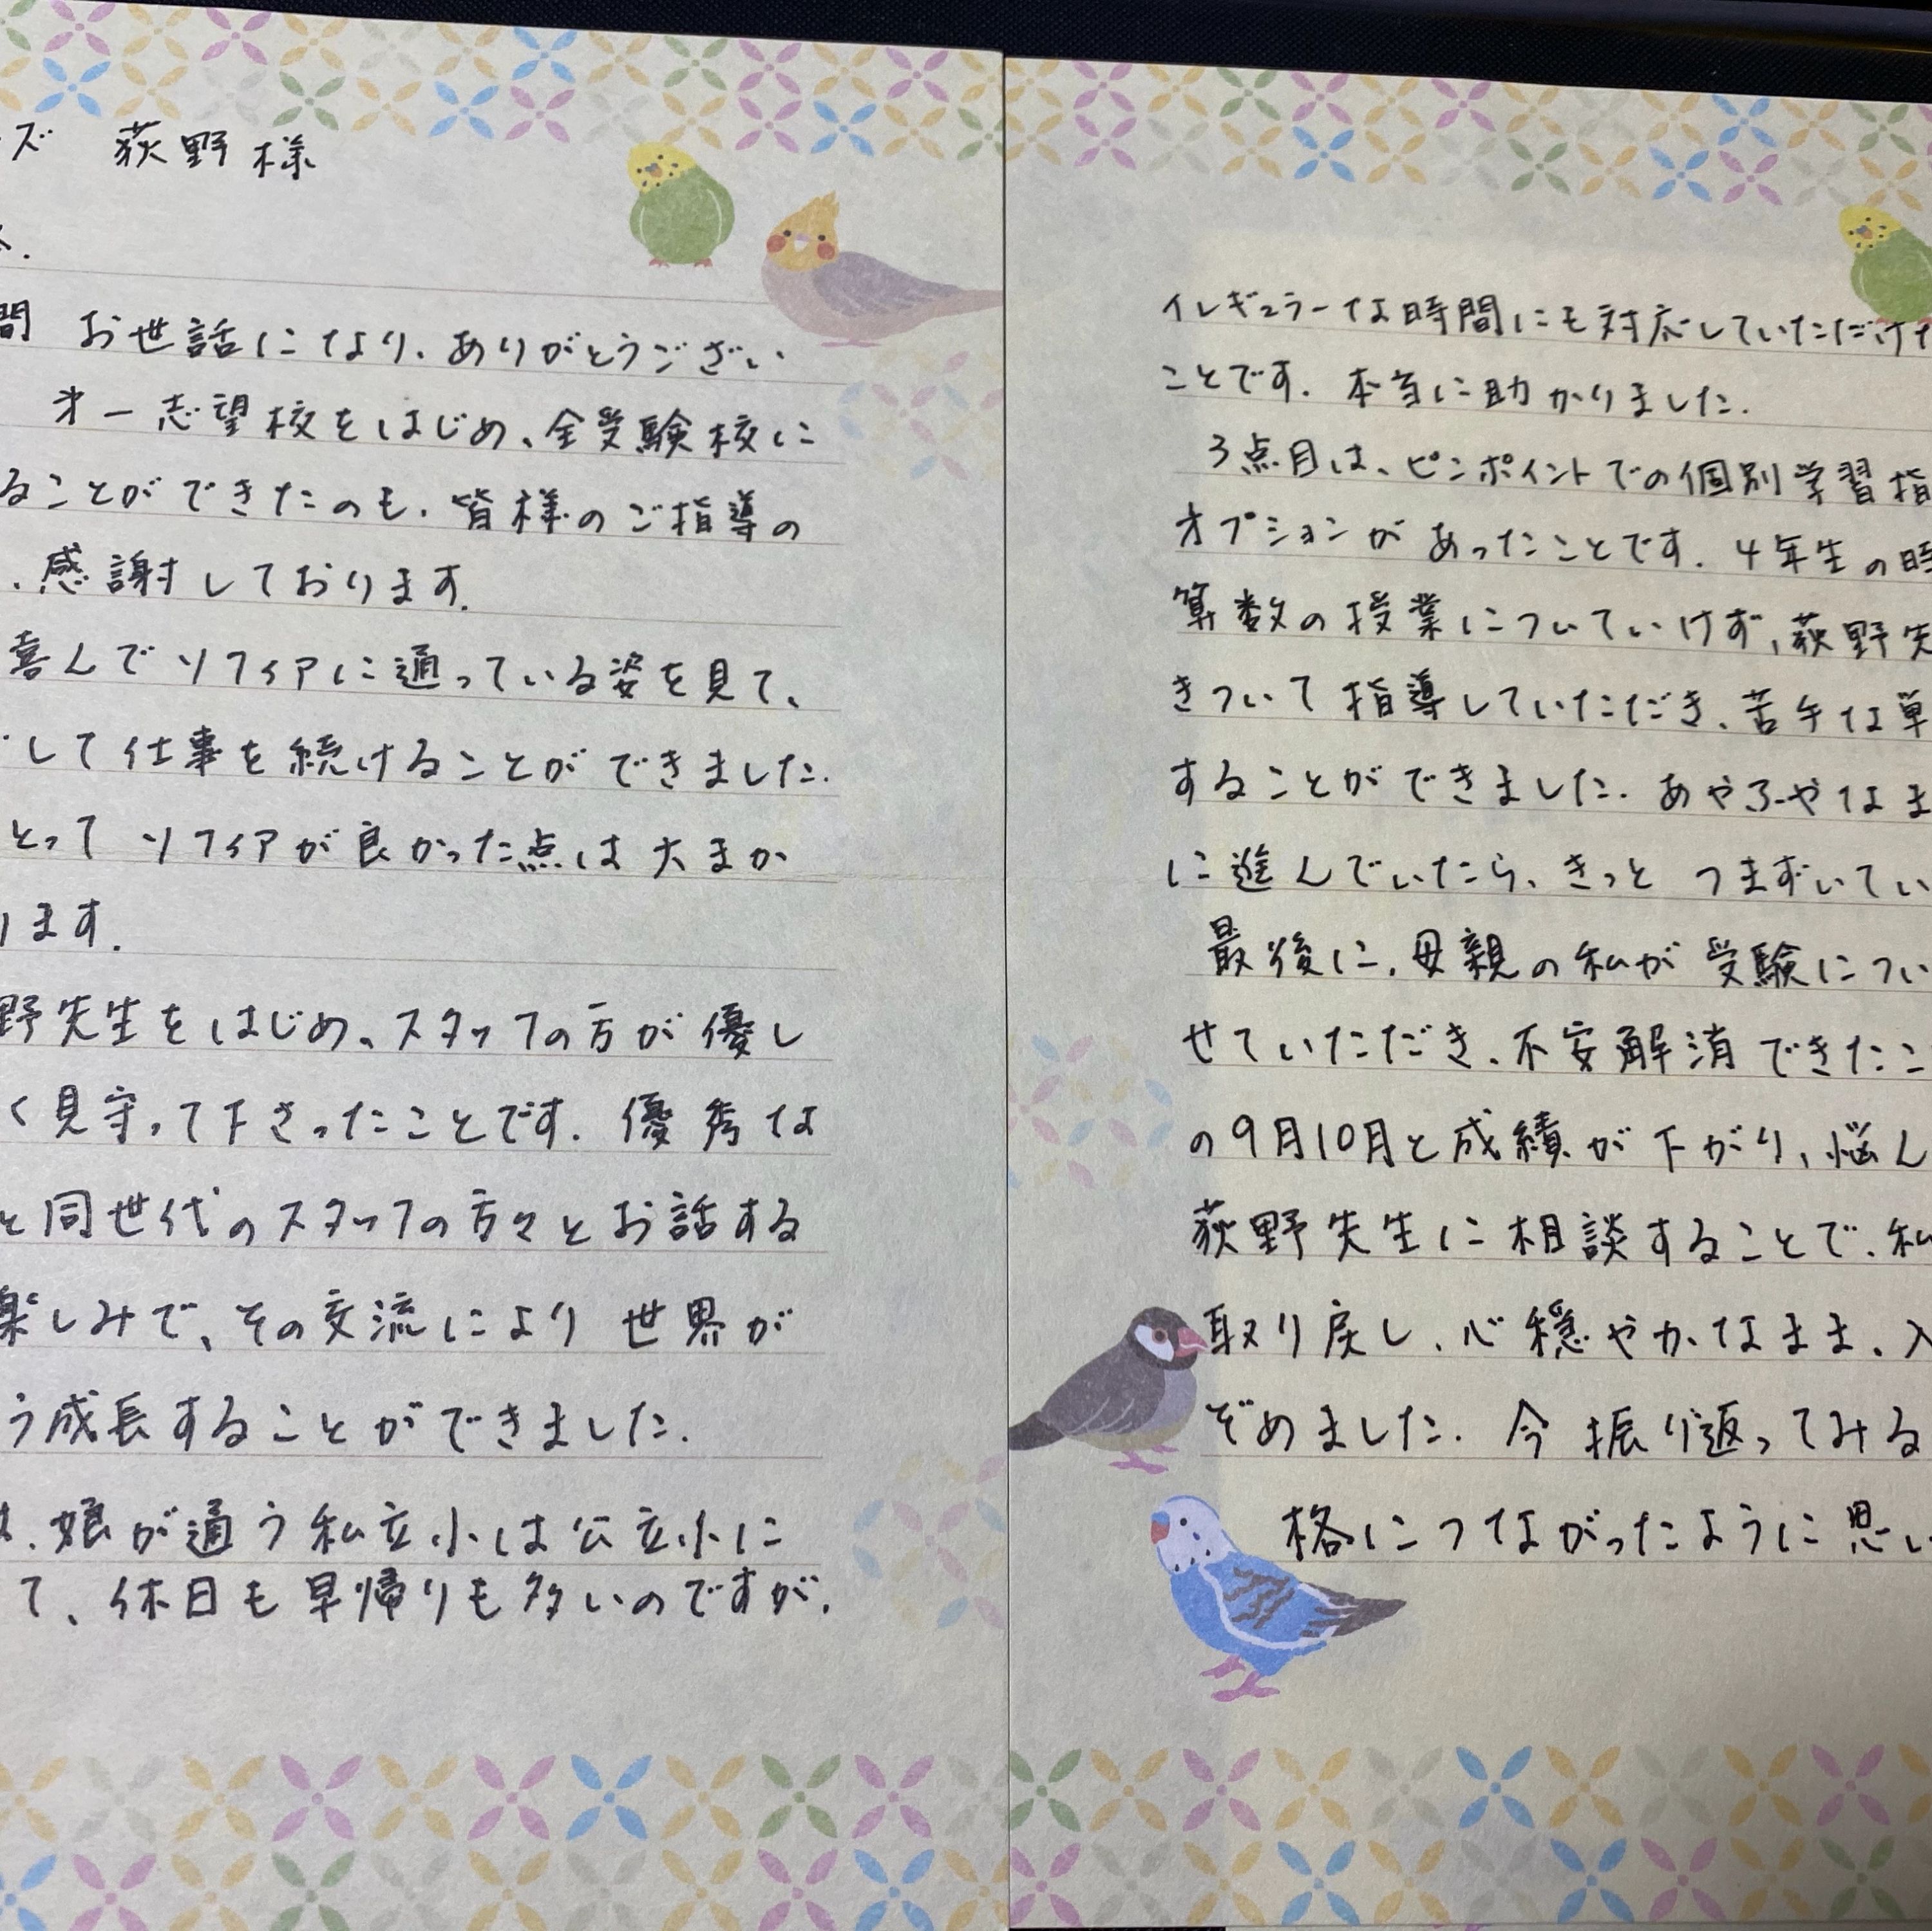 ズ 荻野様
間 お世話になり、ありがとうござい
才一志望校をはじめ、全受験校に
ることができたのも、皆様のご指導の
、感謝しております。
喜んでソフィアに通っている姿を見て、
して仕事を続けることができました。
とって ソフィアが良かった点は大まか
ります。
野先生をはじめ、スタッフの方が優し
く見守って下さったことです。優秀な
と同世代のスタッフの方々とお話する
楽しみで、その交流により 世界が
う成長することができました。
は、娘が通う私立小は公立小に
て、休日も早帰りも多いのですが、
イレギュラーな時間にも対応していただけた
ことです。本当に助かりました。
3点目は、ピンポイントでの個別学習指
オプションがあったことです。4年生の時
算数の授業についていけず、荻野先
きついて指導していただき、苦手な単
することができました。あやふやなま
に進んでいたら、きっと つまずいてい
最後に、母親の私が受験につい
せていただき、不安解消できたこ
の9月10月と成績が下がり、悩ん
荻野先生に相談することで、私
取り戻し、心穏やかなまま、入
ぞめました。今振り返ってみる
格につながったように思い